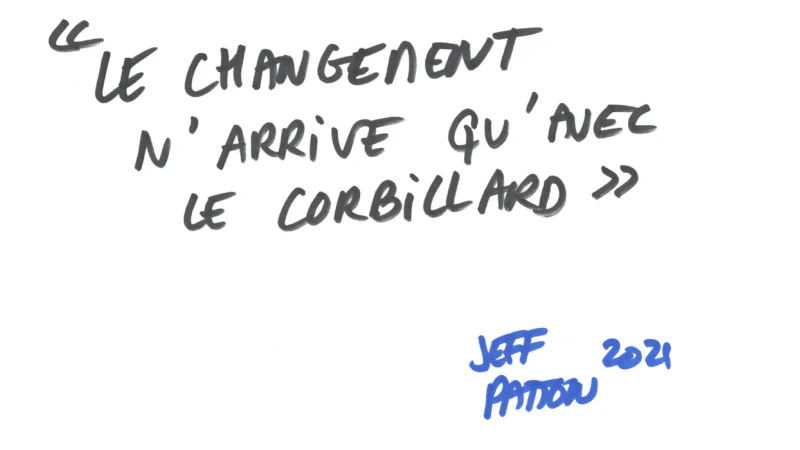 « LE CHANGEMENT
N'ARRIVE QU'AVEC
LE CORBILLARD »
JEFF 2021
PATTON